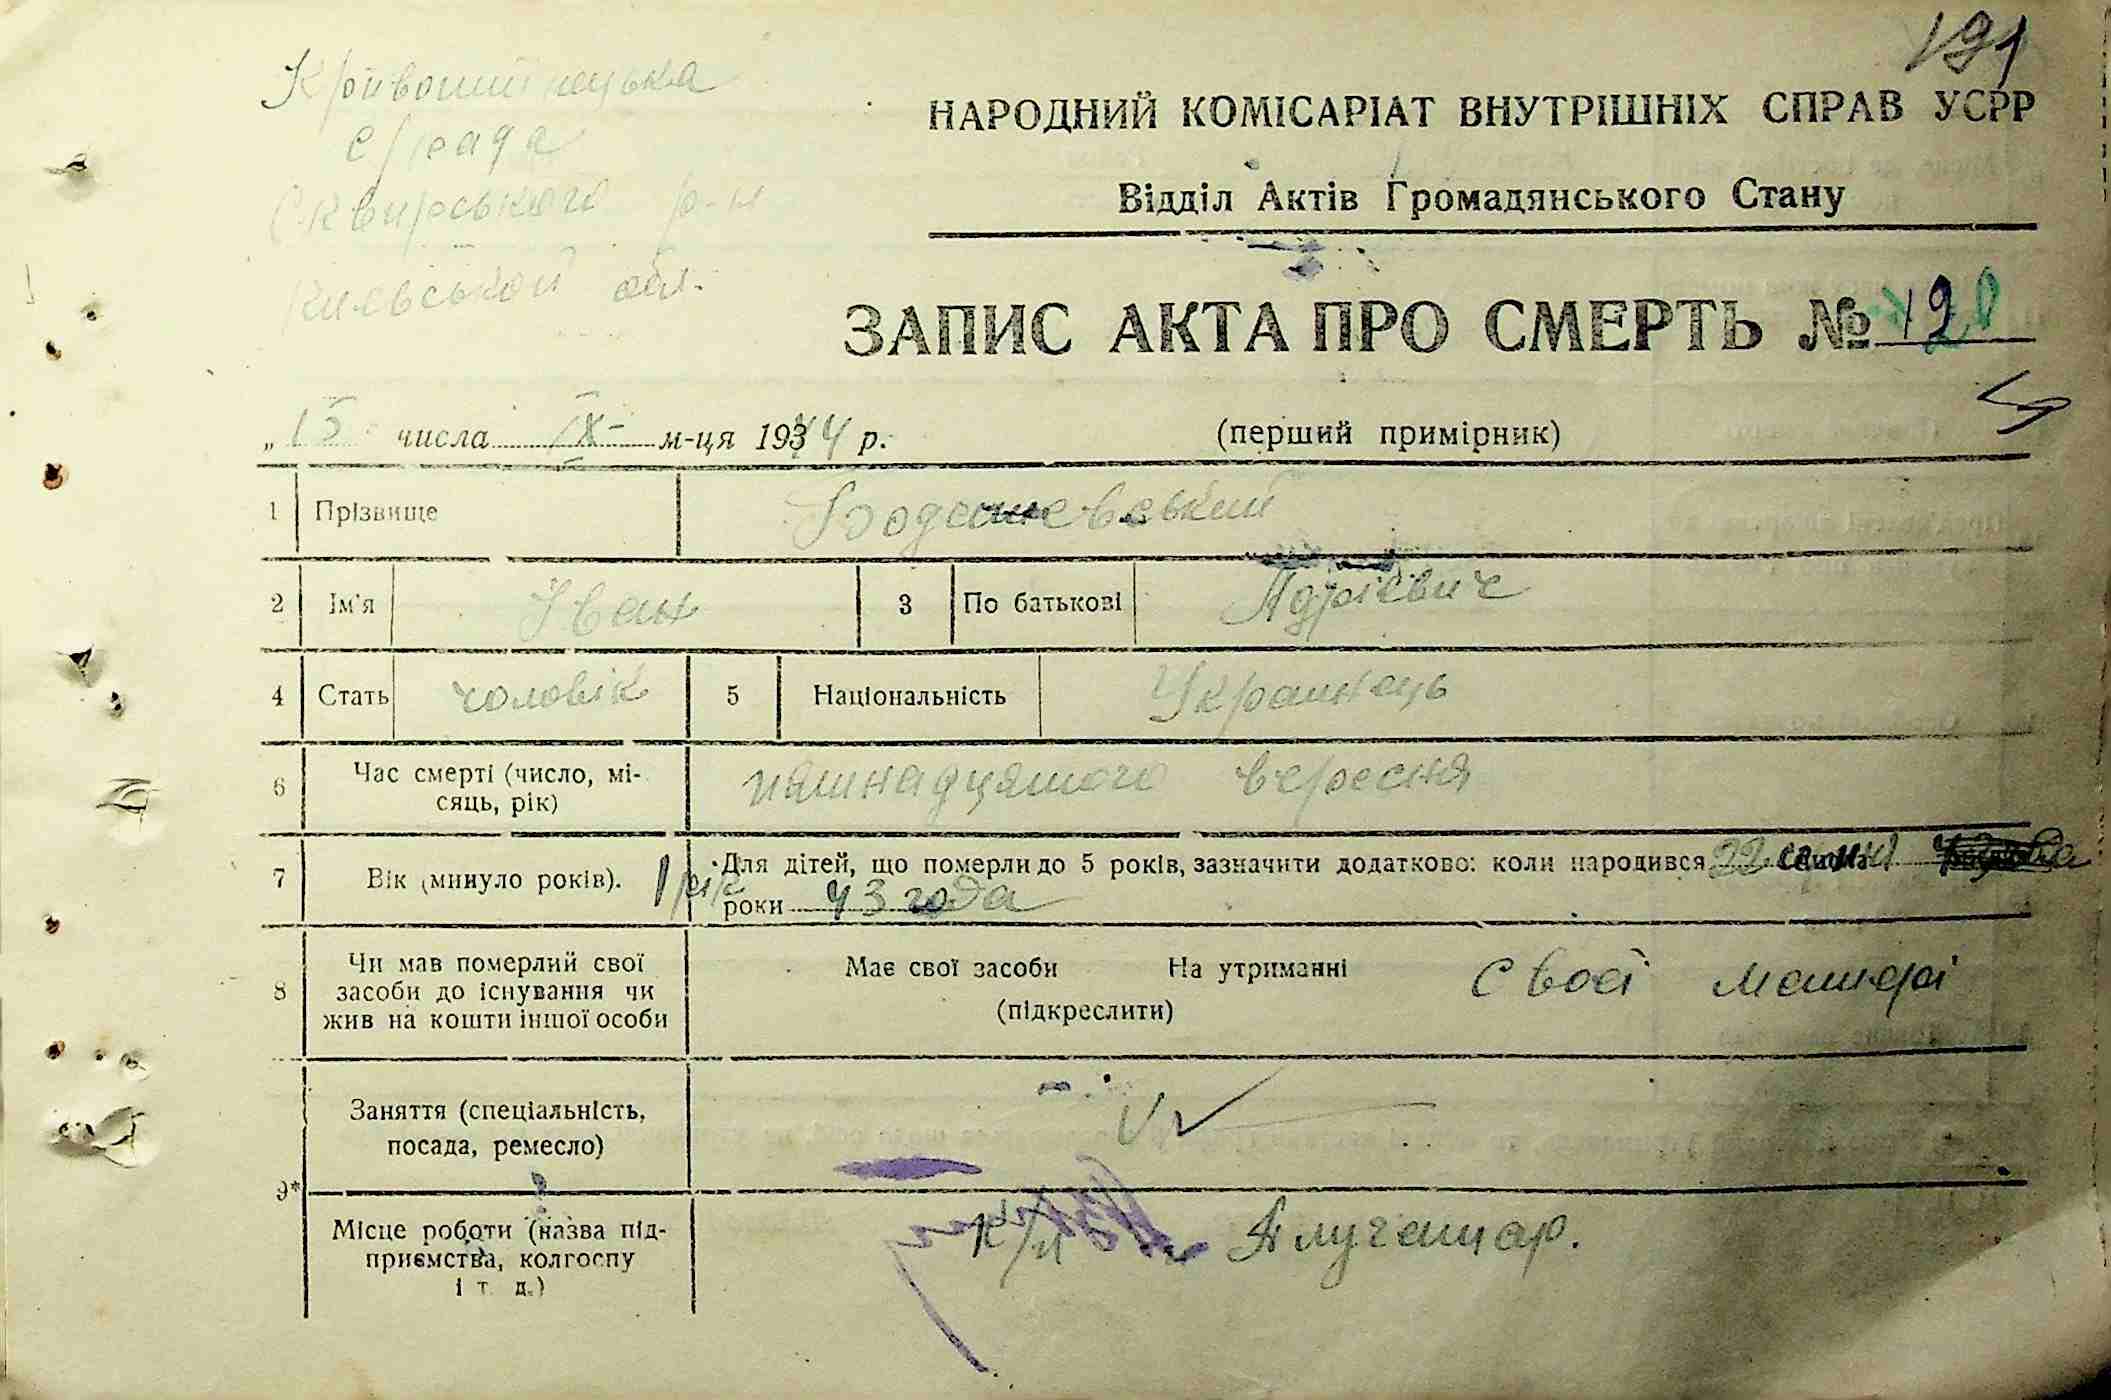 191
Кривошиїнецька
с/рада
Сквирського р-н
Киевської обл.
НАРОДНИЙ КОМІСАРІАТ ВНУТРІШНІХ СПРАВ УСРР
Відділ Актів Громадянського Стану
ЗАПИС АКТА ПРО СМЕРТЬ № 120
„ 15 числа IX- м-ця 1944 р.
(перший примірник)
1 Прізвище
2 Ім'я Іван 3 По батькові
4 Стать чоловік 5 Національність Украинець
6 Час смерті (число, мі-
сяць, рік) пятнадцятого вересня
7 Вік (минуло років). 1 рік Для дітей, що померли до 5 років, зазначити додатково: коли народився 22
роки 43 года
8 Чи мав померлий свої
засоби до існування чи
жив на кошти іншої особи
Має свої засоби На утриманні своєї матері
(підкреслити)
9* Заняття (спеціальність,
посада, ремесло)
Місце роботи (назва під-
приємства, колгоспу
і т. д.)